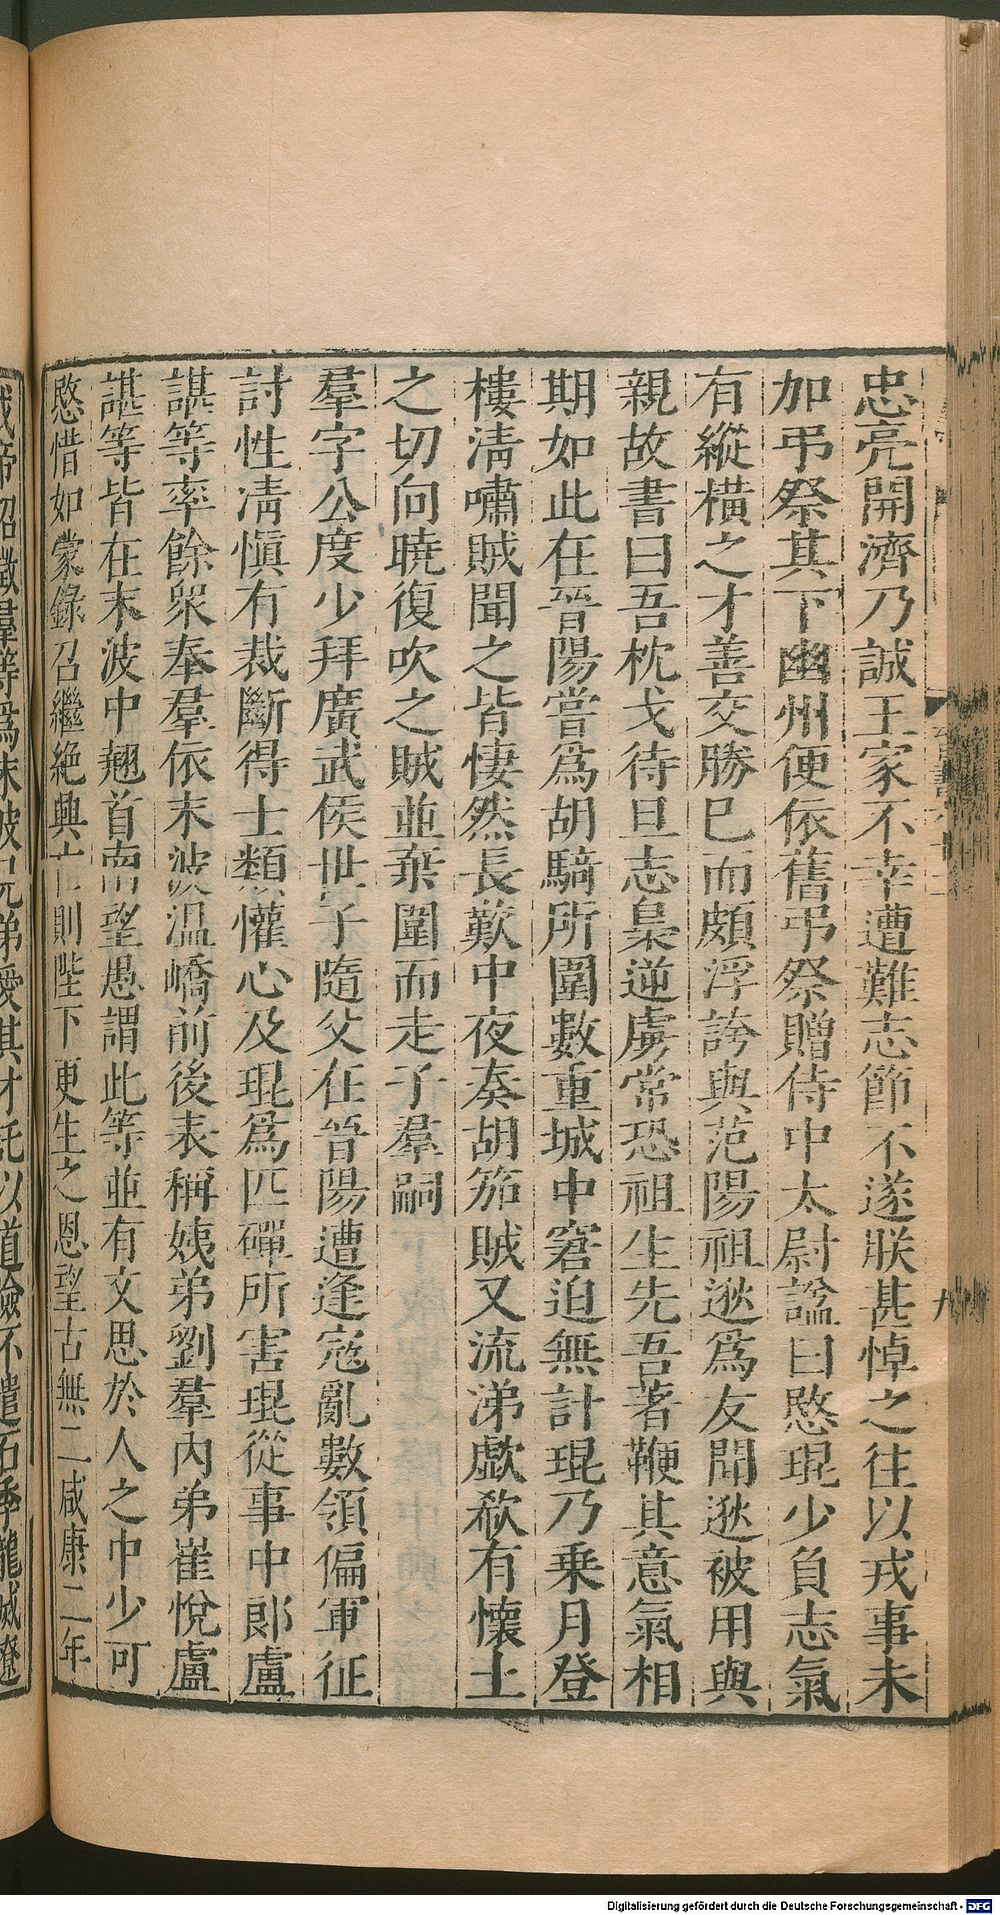 忠亮開濟乃誠王家不幸遭難志節不遂朕甚悼之往以戎事未
加弔祭其下幽州便依舊弔祭贈侍中太尉諡曰愍琨少負志氣
有縱橫之才善交勝已而頗浮誇與范陽祖逖爲友聞逖被用與
親故書曰吾枕戈待旦志梟逆虜常恐祖生先吾著鞭其意氣相
期如此在晉陽嘗爲胡騎所圍數重城中窘迫無計琨乃乗月登
樓淸嘯賊聞之皆悽然長歎中夜奏胡笳賊又流涕歔欷有懷土
之切向曉復吹之賊並棄圍而走子羣嗣
羣字公度少拜廣武侯世子隨父在晉陽遭逢寇亂數領偏軍征
討性淸愼有裁斷得士類懽心及琨爲匹磾所害琨從事中郎盧
諶等率餘衆奉羣依末波溫嶠前後表稱姨弟劉羣內弟崔悅盧
諶等皆在末波中翹首南望愚謂此等並有文思於人之中少可
愍惜如蒙錄召繼絶興亡則陛下更生之恩望古無二咸康二年
成帝詔徵羣等爲末波兄弟愛其才託以道險不遣石季龍滅遼
九
Digitalisierung gefördert durch die Deutsche Forschungsgemeinschaft - DFG